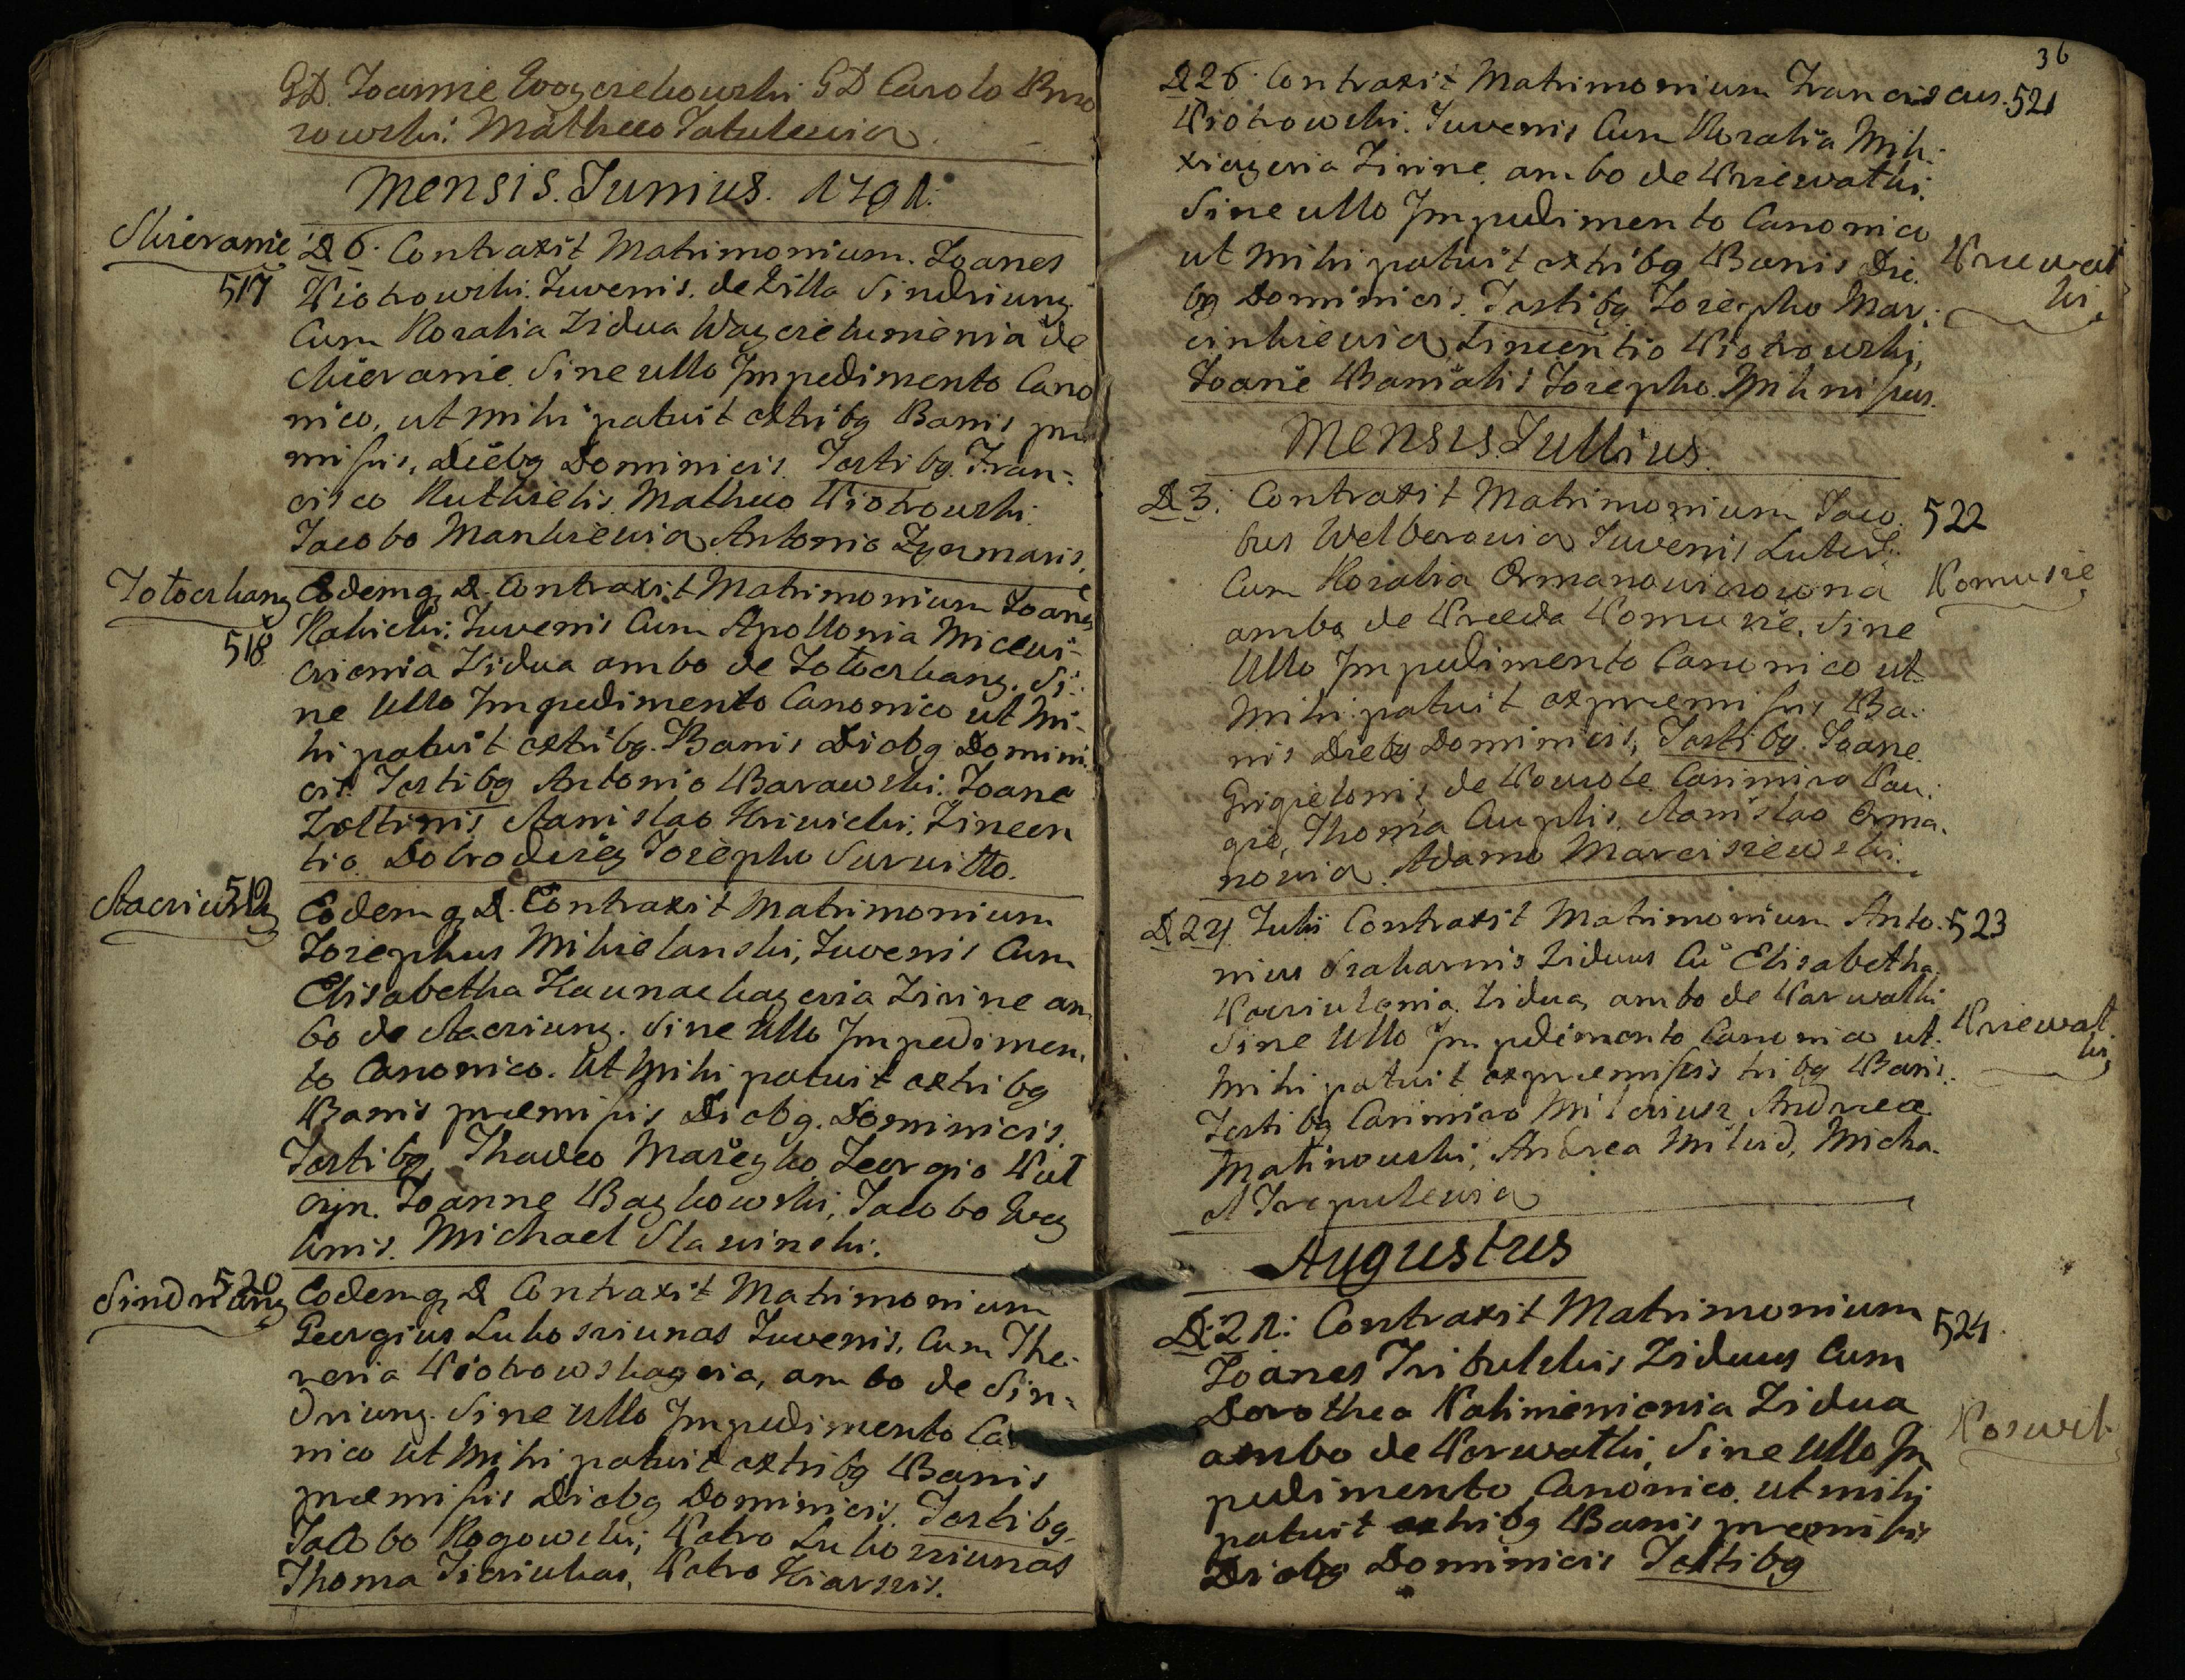 GD. Joanne Woyczekowski GD Carolo Brzo
zowski. Matheo Jatulewicz
Mensis. Junius. 1791.
Skieranie
517
D 6. Contraxit Matrimonium. Joanes
Piotrowski. Juvenis. de Villa Sindriuny
Cum Rozalia Vidua Woyciekunienia de
Skieranie. Sine ullo Impedimento Cano
nico, ut mihi patuit extribq Banis præ
missis, Diebq Dominicis. Testibq. Fran-
cisco Rutkielis. Matheo Piotrowski.
Jacobo Mankiewicz Antonio Zynmaris.
518
Eodemq D. Contraxit Matrimonium Joanes
Rabicki. Juvenis Cum Apollonia Micewi-
czienia Vidua ambo de Totoczkany. Si-
ne Ullo Impedimento Canonico ut Mi-
hi patuit extribq. Banis Diebq Domini
cis. Testibq Antonio Barawski. Joane
Zoltinis Stanislao Krivicki. Vincen
tio Dobrodziey Josepho Surwitto.
519
Eodemq D. Contraxit Matrimonium
Josephus Mikielanski, Juvenis Cum
Elisabetha Kaunackaycia Virine am
bo de Stacziuny. Sine Ullo Impedimen
to Canonico. Ut Mihi patuit extribq
Banis præmissis Diebq. Dominicis.
Testibq, Thadeo Mareyko Georgio Put
czyn. Joanne Baykowski, Jacobo Wey
knis. Michael Slawinski.
Sindriuny
520
Eodemq D Contraxit Matrimonium
Georgius Lukosziunas Juvenis. Cum The-
resia Piotrowskaycia, ambo de Sin-
driuny. Sine Ullo Impedimento Ca
nico ut Mihi patuit extribq Banis
præmissis Diebq Dominicis. Testibq
Jacobo Rogowski, Petro Lukosziunas
Thoma Jicziukas, Petro Kiarszis.
36
D 26. Contraxit Matrimonium Franciscus. 521
Piotrowski. Juvenis Cum Rozalia Mik-
Virine ambo de Krzewatki
Sine ullo Impedimento Canonico
ut Mihi patuit extribq Banis Die
bq Dominicis. Testibq Josepho Mar-
cinkiewicz Vincentio Piotrowski,
Joane Banialis Josepho Miknissus.
Mensis Jullius
D 3. Contraxit Matrimonium Jaco
522
bus Welberowicz Juvenis Luter.
Cum Rozalia Ormanowiczowna
ambo de Preeda Komusie. Sine
Komusie
Ullo Impedimento Canonico ut
Mihi patuit expræmissis Ba-
nis Diebq Dominicis, Testibq. Joane
Grigielonis de Powiole Casimiro Pau-
gie, Thoma Auplis, Stanislao Orma-
nowicz. Adamo Marciszewski.
D 24 Julii Contraxit Matrimonium Anto- 523
nius Szakarnis Viduus Cu Elisabetha
Vidua ambo de Karwatki
Sine Ullo Impedimento Canonico ut
Mihi patuit expræmissis tribq Banis.
Testibq Casimiro Milcziusz Andrea
Malinowski, Andrea Mikszd, Micha-
el Trepulewicz
Augustus
D. 21: Contraxit Matrimonium
524
Joanes Tribulskis Viduus Cum
Dorothea Kalinienienia Vidua
ambo de Karwatki, Sine Ullo Im
pedimento Canonico. ut mihi
patuit extribq Banis præmissis
Diebq Dominicis Testibq